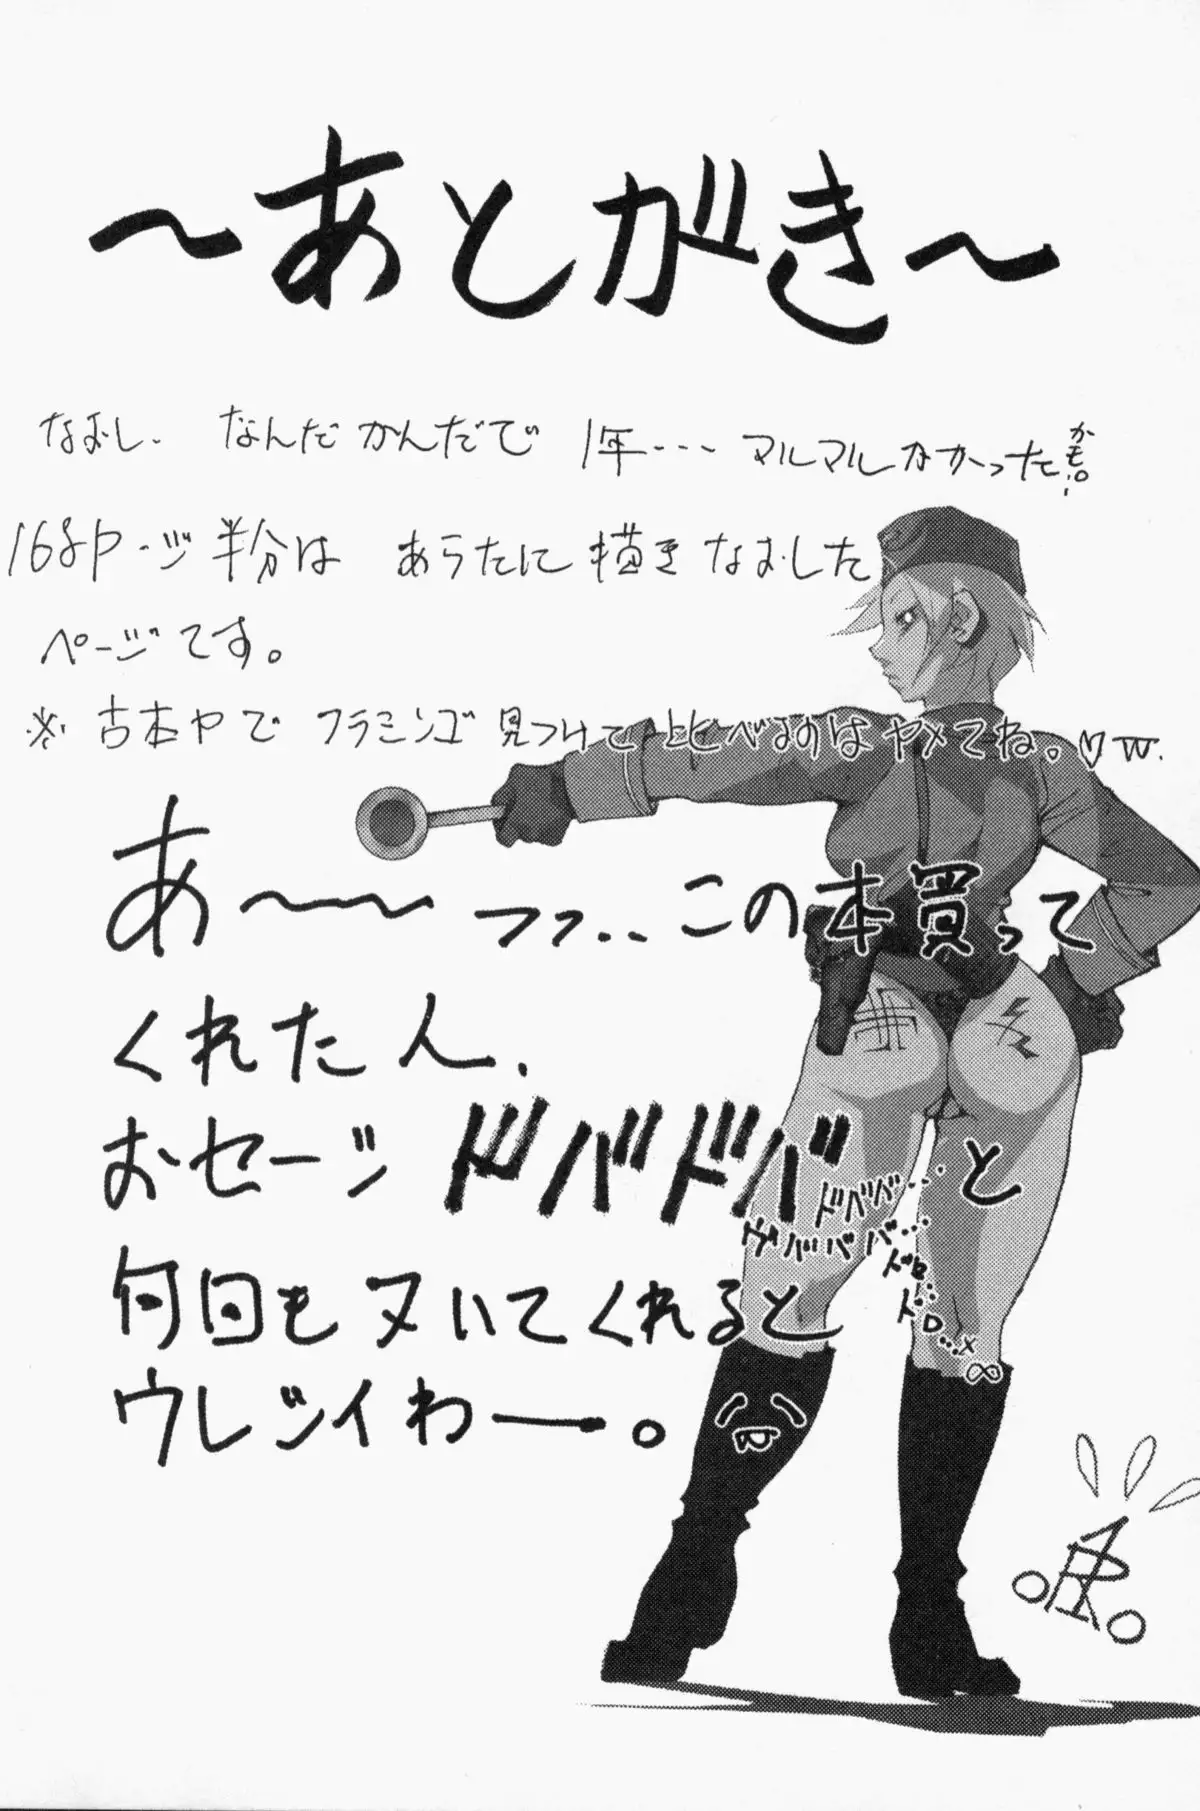 ～あとがき～
なおし、なんだかんだで 1年・・・マルマルなかったかも。!
168P・ジ半分は あらたに描きなおした
ページです。
※古本ヤで フラミンゴ見つけて比べますのはヤメてね。♡w.
あ～～ ッフ..この本買って
くれた人、
おセージ ドバドバと
ドババ...
ババババ...
何回もヌいてくれると
ウレシイわー。